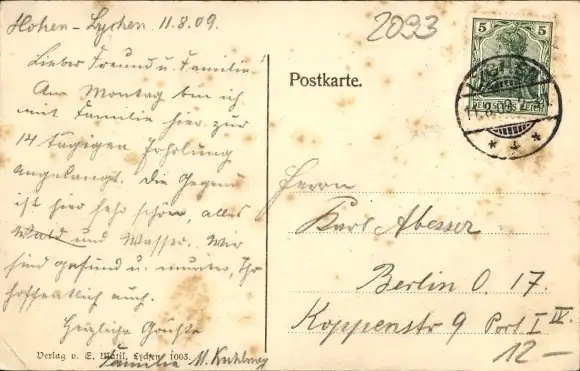 Hohen-Lychen 11.8.09.
Lieber Freund u. Familie!
Am Montag bin ich
mit Familie hier zur
14 tägigen Erholung
angelangt. Die Gegend
ist hier sehr schön, alles
Wald und Wasser. Wir
sind gesund u. munter, Ihr
hoffentlich auch.
Herzliche Grüße
Familie M.
Verlag v. E. Lychen 1003.
2093
Postkarte.
5 5
DEUTSCHES REICH
LYCHEN
11.8.
Herrn
Karl Abesser
Berlin O. 17.
Koppenstr 9 Port I IV.
12-